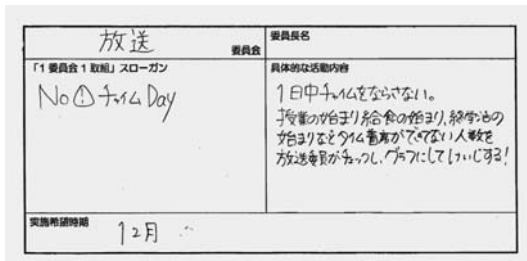 放送 委員会
委員長名
「1委員会1取組」スローガン
No①チャイムDay
具体的な活動内容
1日中チャイムをならさない。
授業の始まり給食の始まり、終学活の
始まりなどタイム着席ができてない人数を
放送委員がチェックし、グラフにしてけいじする!
実施希望時期
12月